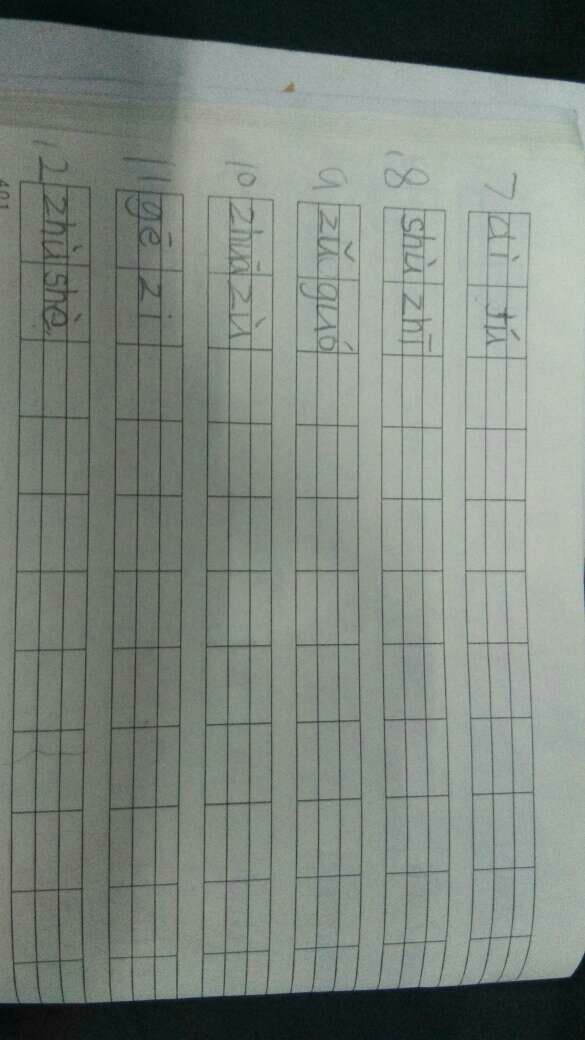 7 dì tú
8 shù zhī
9 zǔ guó
10 zhú zi
11 gē zi
12 zhù shè